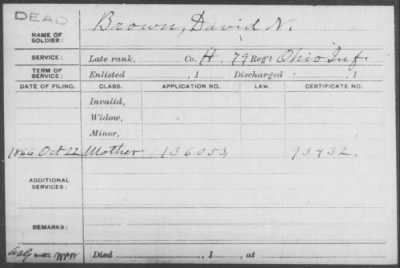 DEAD
NAME OF SOLDIER: Brown, David N.
SERVICE: Late rank, Co. H. 79 Reg't Ohio Inf.
TERM OF SERVICE: Enlisted , 1 Discharged , 1
DATE OF FILING. CLASS. APPLICATION NO. LAW. CERTIFICATE NO.
Invalid,
Widow,
Minor,
1866 Oct 22 Mother 136053 93732.
ADDITIONAL SERVICES:
REMARKS:
Died , 1 , at